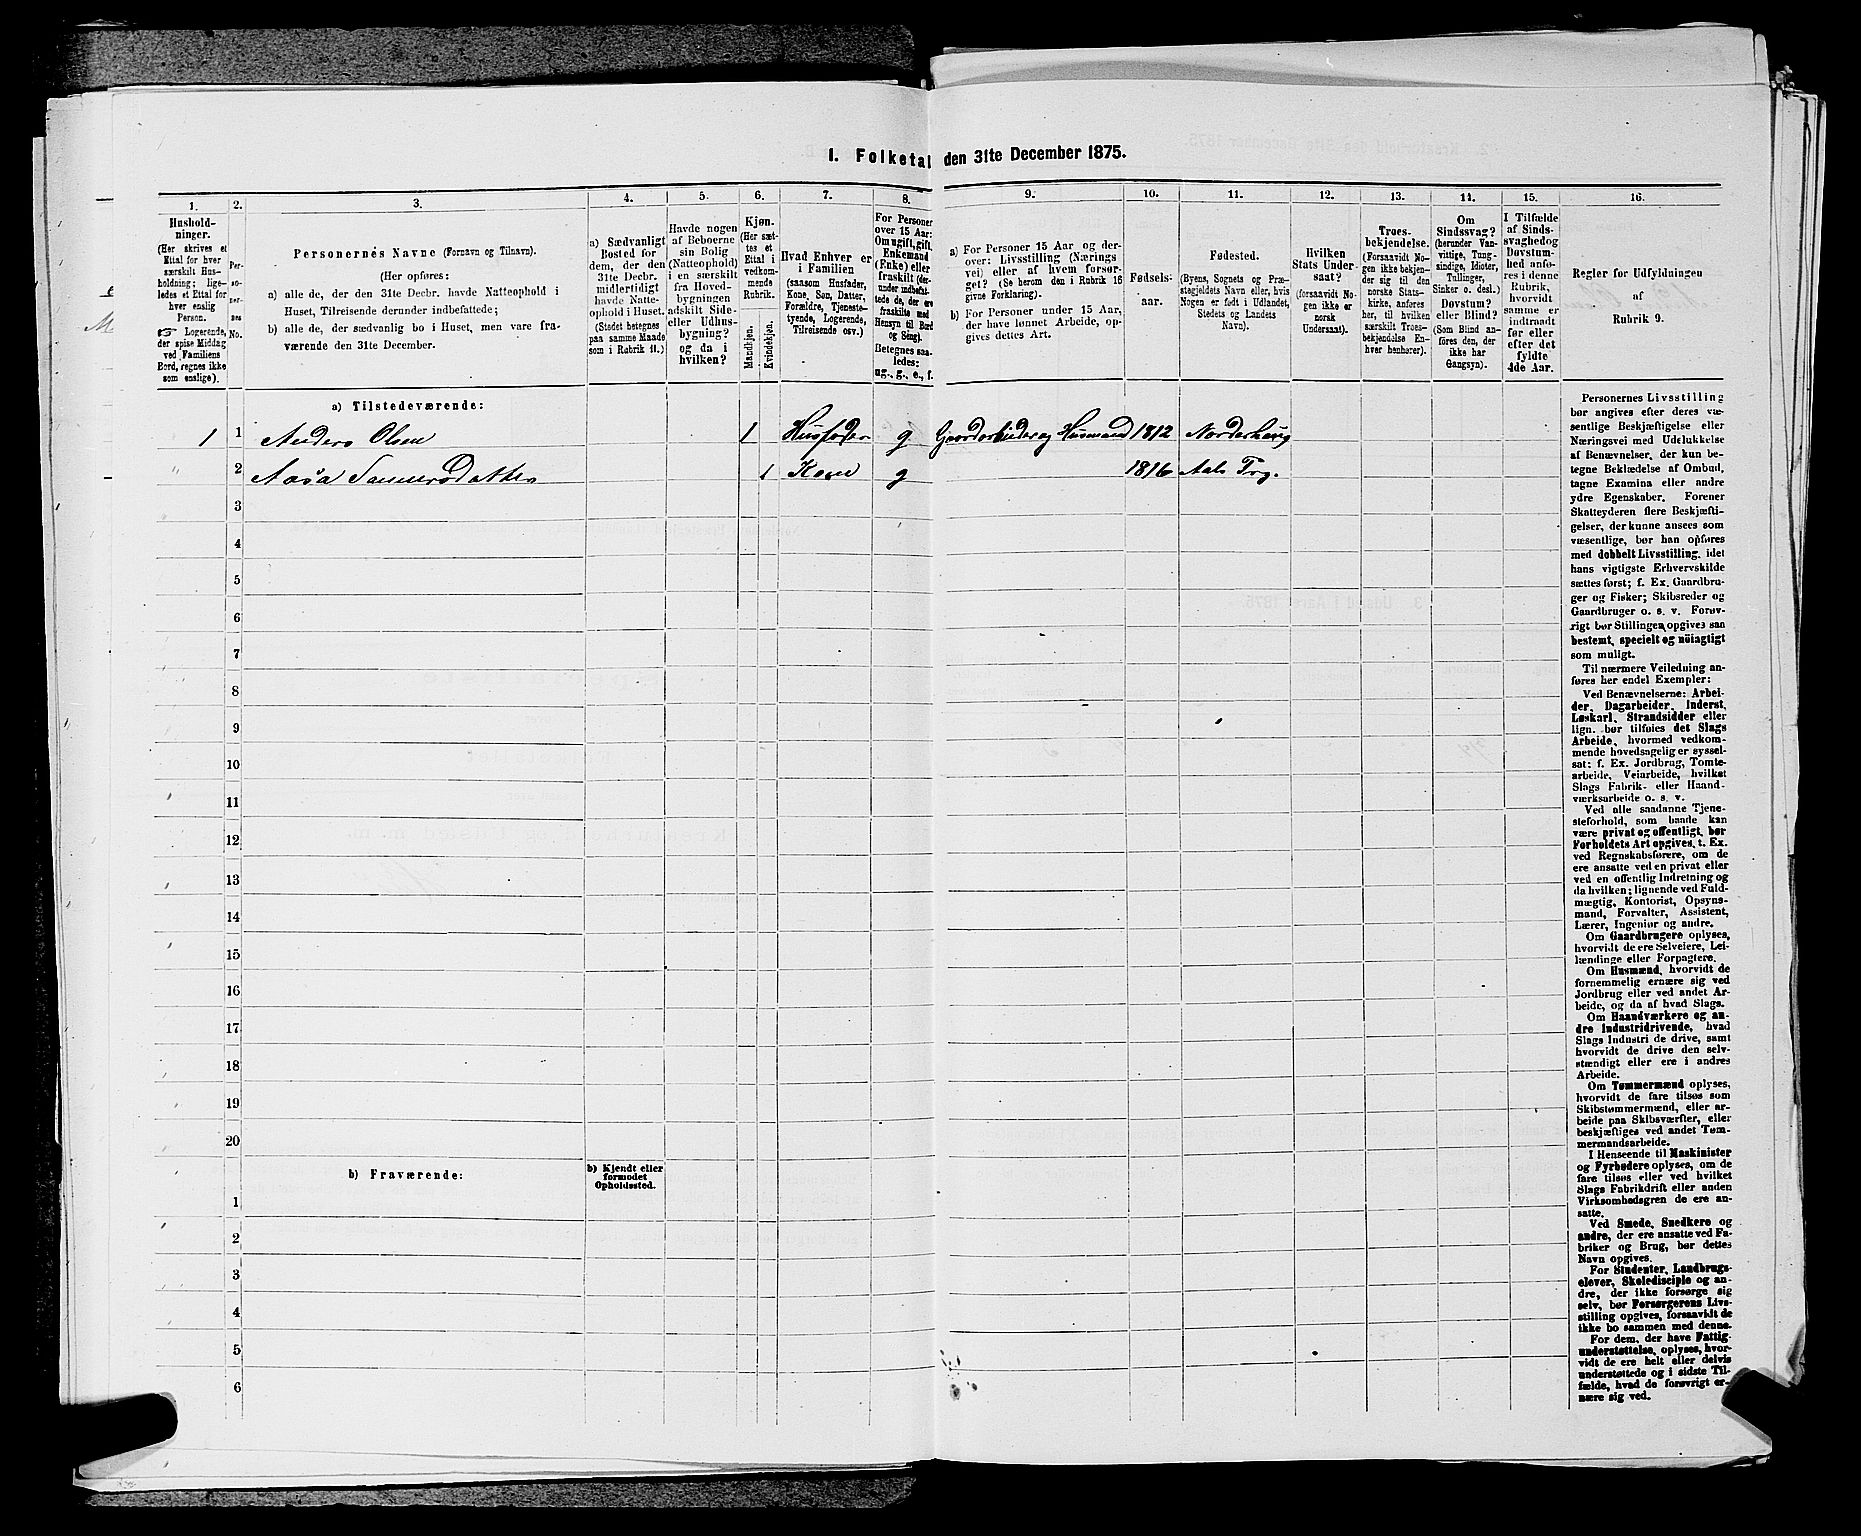 1. Folketal den 31te December 1875.
1.
Hushold-
ninger.
(Her skrives et
Ettal for hver
særskilt Hus-
holdning; lige-
ledes et Ettal for
hver enslig
Person.
☞ Logerende,
der spise Middag
ved Familiens
Bord, regnes ikke
som enslige).
2.
Per-
so-
ner-
nes
No.
3.
Personernes Navne (Fornavn og Tilnavn).
(Her opføres:
a) alle de, der den 31te Decbr. havde Natteophold i
Huset, Tilreisende derunder indbefattede;
b) alle de, der sædvanlig bo i Huset, men vare fra-
værende den 31te December.
4.
a) Sædvanligt
Bosted for
dem, der den
31te Decbr.
midlertidigt
havde Natte-
ophold i Huset.
(Stedet betegnes
paa samme Maade
som i Rubrik 11.)
5.
Havde nogen
af Beboerne
sin Bolig
(Natteophold)
i en særskilt
fra Hoved-
bygningen
adskilt Side-
eller Udhus-
bygning?
og da i
hvilken?
6.
Kjøn.
(Her sæt-
tes et
Ettal i
vedkom-
mende
Rubrik.
Mandkjøn.
Kvindekjøn.
7.
Hvad Enhver er
i Familien
(saasom Husfader,
Kone, Søn, Datter,
Forældre, Tjeneste-
tyende, Logerende,
Tilreisende osv.)
8.
For Personer
over 15 Aar:
Om ugift, gift,
Enkemand
(Enke) eller
fraskilt (der-
under indbefat-
tede de, der ere
fraskilte med
Hensyn til Bord
og Seng).
Betegnes saa-
ledes:
ug., g., e., f.
9.
a) For Personer 15 Aar og der-
over: Livsstilling (Nærings
vei) eller af hvem forsør-
get? (Se herom den i Rubrik 16
givne Forklaring).
b) For Personer under 15 Aar,
der have lønnet Arbeide, op-
gives dettes Art.
10.
Fødsels-
aar.
11.
Fødested.
(Byens, Sognets og Præ-
stegjeldets Navn eller, hvis
Nogen er født i Udlandet,
Stedets og Landets
Navn).
12.
Hvilken
Stats Under-
saat?
(forsaavidt No-
gen ikke er
norsk
Undersaat).
13.
Troes-
bekjendelse.
(Forsaavidt No-
gen ikke bekjen-
der sig til den
norske Stats-
kirke, anføres
her, til hvilken
særskilt Troes-
bekjendelse En-
hver henhører).
14.
Om
Sindssvag?
(herunder Van-
vittige, Tung-
sindige, Idioter,
Tullinger,
Sinker o. desl.)
Døvstum?
eller Blind?
(Som Blind an-
føres den, der
ikke har
Gangsyn).
15.
I Tilfælde
af Sinds-
svaghed og
Døvstum-
hed anfø-
res i denne
Rubrik,
hvorvidt
samme er
indtraadt
før eller
efter det
fyldte
4de Aar.
16.
Regler for Udfyldningen
af
Rubrik 9.
a) Tilstedeværende:
1 1 Anders Olsen 1 Husfader g Gaardarbeider og Husmand 1812 Norderhoug
" 2 Aasa Gunnersdatter 1 Kone g 1816 Aals Prg.
3
4
5
6
7
8
9
10
11
12
13
14
15
16
17
18
19
20
b) Fraværende:
b) Kjendt eller
formodet
Opholdssted.
1
2
3
4
5
6
Personernes Livsstilling
bør angives efter deres væ-
sentlige Beskjæftigelse eller
Næringsvei med Udelukkelse
af Benævnelser, der kun be-
tegne Beklædelse af Ombud,
tagne Examina eller andre
ydre Egenskaber. Forener
Skatteyderen flere Beskjæfti-
gelser, der kunne ansees som
væsentlige, bør han opføres
med dobbelt Livsstilling, idet
hans vigtigste Erhvervskilde
sættes først; f. Ex. Gaardbru-
ger og Fisker; Skibsreder og
Gaardbruger o. s. v. Forøv-
rigt bør Stillingen opgives saa
bestemt, specielt og nöiagtigt
som muligt.
Til nærmere Veiledning an-
føres her endel Exempler:
Ved Benævnelserne: Arbei-
der, Dagarbeider, Inderst,
Løskarl, Strandsidder eller
lign. bør tilføies det Slags
Arbeide, hvormed vedkom-
mende hovedsagelig er syssel-
sat; f. Ex. Jordbrug, Tomte-
arbeide, Veiarbeide, hvilket
Slags Fabrik- eller Haand-
værksarbeide o. s. v.
Ved alle saadanne Tjene-
steforhold, som baade kan
være privat og offentligt, bør
Forholdets Art opgives, t. Ex.
ved Regnskabsførere, om de
ere ansatte ved en privat eller
ved en offentlig Indretning og
da hvilken; lignende ved Fuld-
mægtig, Kontorist, Opsyns-
mand, Forvalter, Assistent,
Lærer, Ingeniør og andre.
Om Gaardbrugere oplyses,
hvorvidt de ere Selveiere, Lei-
lændinge eller Forpagtere.
Om Husmænd, hvorvidt de
fornemmelig ernære sig ved
Jordbrug eller ved andet Ar-
beide, og da af hvad Slags.
Om Haandværkere og an-
dre Industridrivende, hvad
Slags Industri de drive, samt
hvorvidt de drive den selv-
stændigt eller ere i andres
Arbeide.
Om Tømmermænd oplyses,
hvorvidt de fare tilsøs som
Skibstømmermænd, eller ar-
beide paa Skibsværfter, eller
beskjæftiges ved andet Tøm-
mermandsarbeide.
I Henseende til Maskinister
og Fyrbødere oplyses, om de
fare tilsøs eller ved hvilket
Slags Fabrikdrift eller anden
Virksomhedsgren de ere an-
satte.
Ved Smede, Snedkere og
andre, der ere ansatte ved Fa-
briker og Brug, bør dettes
Navn opgives.
For Studenter, Landbrugs-
elever, Skoledisciple og an-
dre, der ikke forsørge sig
selv, bør Forsørgerens Livs-
stilling opgives, forsaavidt de
ikke bo sammen med denne.
For dem, der have Fattig-
understøttelse, oplyses, hvor-
vidt de ere helt eller delvis
understøttede og i sidste Til-
fælde, hvad de forøvrigt er-
nære sig ved.